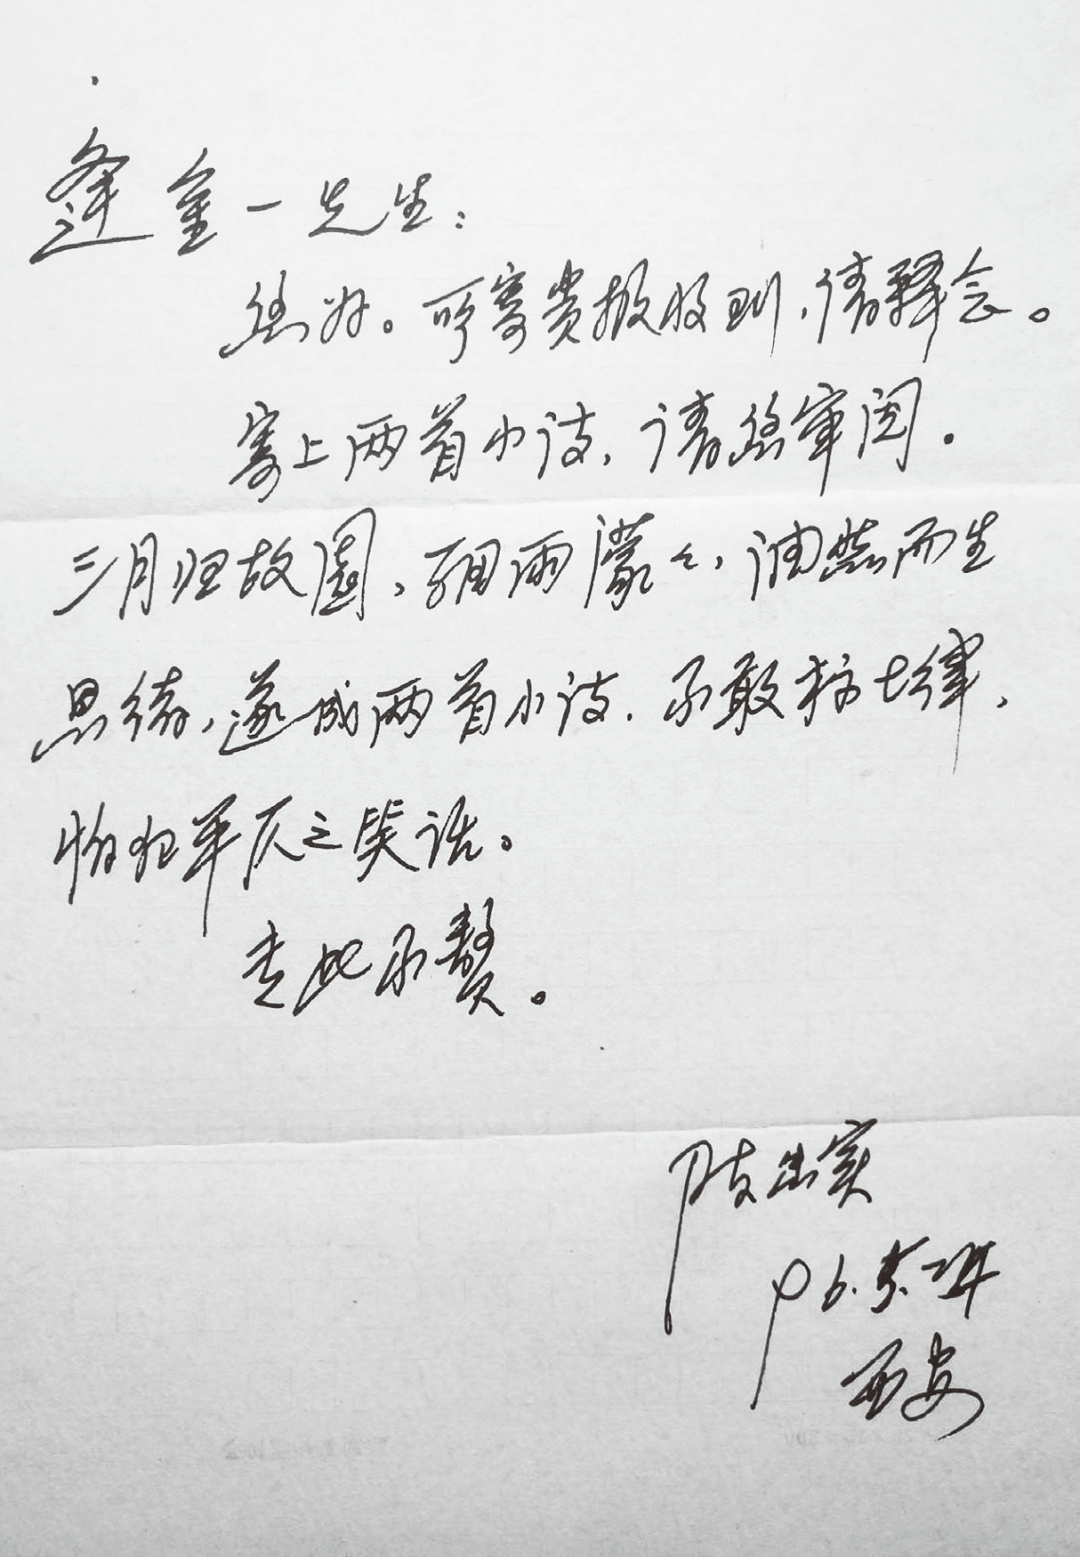 逄金一先生：
您好。所寄贵报收到，请释念。
寄上两首小诗，请您审阅。
三月归故园，细雨濛々，油然而生
思绪，遂成两首小诗。不敢称七律，
怕犯平仄之笑话。
专此不赘。
陈忠实
96.5.24
西安